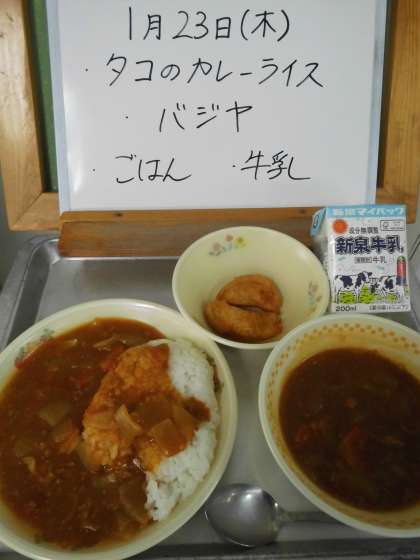 1月23日(木)
・タコのカレーライス
・バジヤ
・ごはん ・牛乳
成分無調整
新泉牛乳
200ml